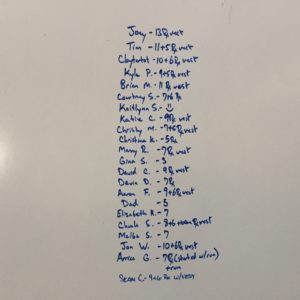 Joey - 13 Rx vest
Tim - 11+5 Rx vest
10+6 Rx vest
Kyle P. - 9+5 Rx vest
Brian M. - 11 Rx vest
Courtney S. - 7+6 Rx
Kaitlynn S. - ☺
Katie C. - 9 Rx vest
Christy M. - 7+5 Rx vest
Christina K. - 5 Rx
Mary R. - 7 Rx vest
Gina S. - 5
David C. - 9 Rx vest
Devin D. - 7 Rx
Aaron F. - 9+6 Rx vest
Dad - 5
Elizabeth K. - 7
Chuck S. - 8+6 Rx vest
Melba S. - 7
Jon W. - 10+6 Rx vest
G. - 7 Rx (started w/run)
+run
Sean C - 9+6 Rx w/vest